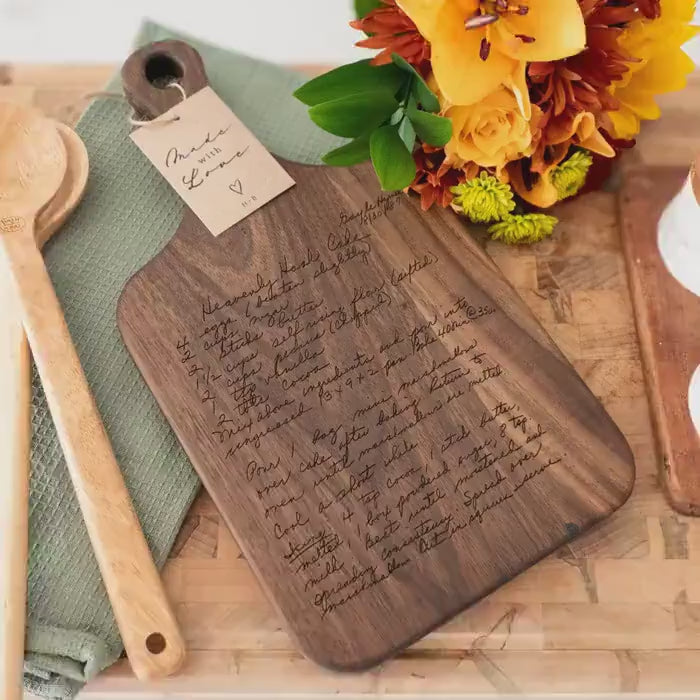 Made
with
Love
H+B
Heavenly Hash Cake
4 eggs (beaten slightly)
2 cups sugar
2 sticks butter
1 1/2 cups self rising flour (sifted)
2 cups pecans (chopped)
2 tsp vanilla
2 tbls cocoa
Mix above ingredients and pour into
ungreased 13 x 9 x 2 pan Bake 40 min @ 350.
Pour 1 bag mini marshmallow
over cake after baking. Return to
oven until marshmallows are melted
Cool a short while.
Icing 4 tsp cocoa, 1 stick butter
melted, 1 box powdered sugar, 8 tsp
milk. Beat until moistened and
spreading consistency. Spread over
marshmallow. Cut in squares & serve.